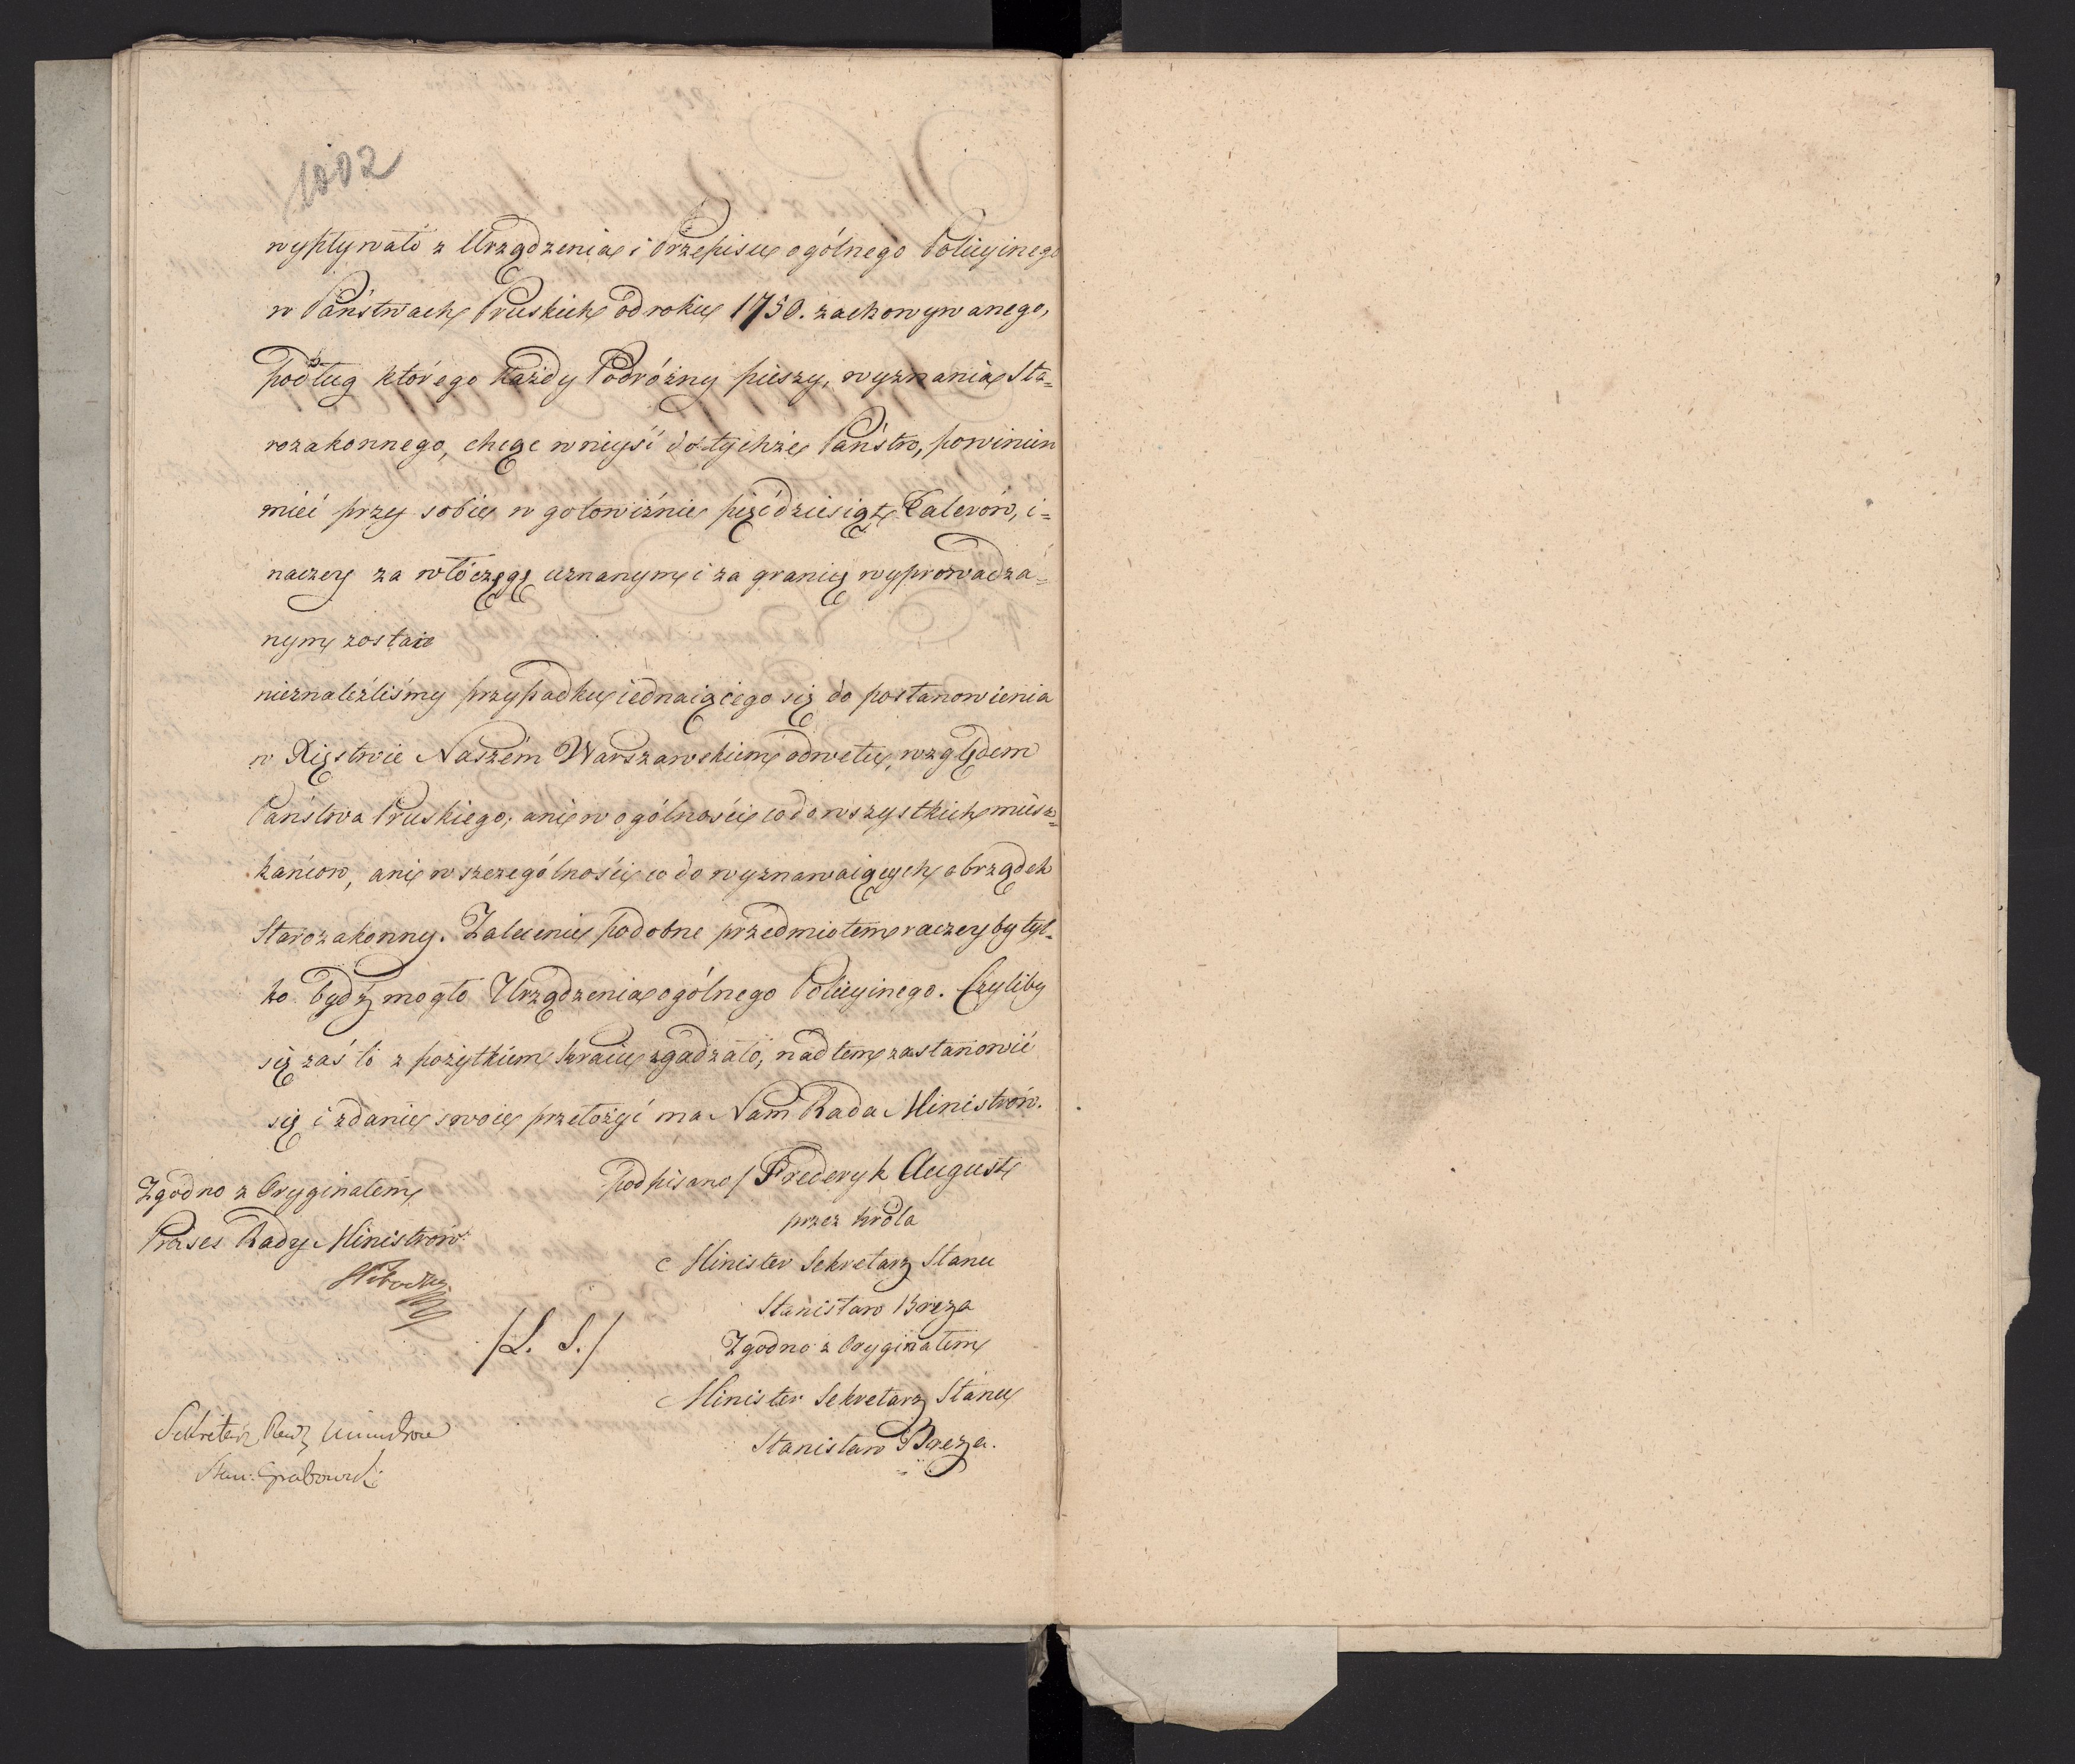 1002
wypływało z Urządzenia i Przepisu ogólnego Policyinego
w Państwach Pruskich od roku 1750. zachowywanego,
podług którego każdy Podróżny pieszy, wyznania Sta=
rozakonnego, chcąc wnieyść do tychże Państw, powinien
mieć przy sobie w gotowiźnie pięćdziesiąt Talerów, i=
naczey za włóczęgę uznanym i za granicę wyprowadza=
nym zostaie
nieznaleźliśmy przypadku iednaiącego się do postanowienia
w Xięstwie Naszém Warszawskiem odwetu, względem
Państwa Pruskiego, ani w ogólności co do wszystkich miesz=
kańców, ani w szczególności co do wyznawaiących obrządek
Starozakonny. Zalecenie podobne przedmiotem raczey by tyl=
ko bydź mogło Urządzenia ogólnego Policyinego. Czyliby
się zaś to z pożytkiem kraiu zgadzało, nad tem zastanowić
się i zdanie swoie przełożyć ma Nam Rada Ministrów.
Zgodno z Oryginałem
Podpisano/ Frederyk August
Prezes Rady Ministrów
przez króla
Minister Sekretarz Stanu
Stanisław Breza
/L. S./
Zgodno z Oryginałem
Minister Sekretarz Stanu
Stanisław Breza.
Sekretarz Rady Ministrow
Stan: Grabowski